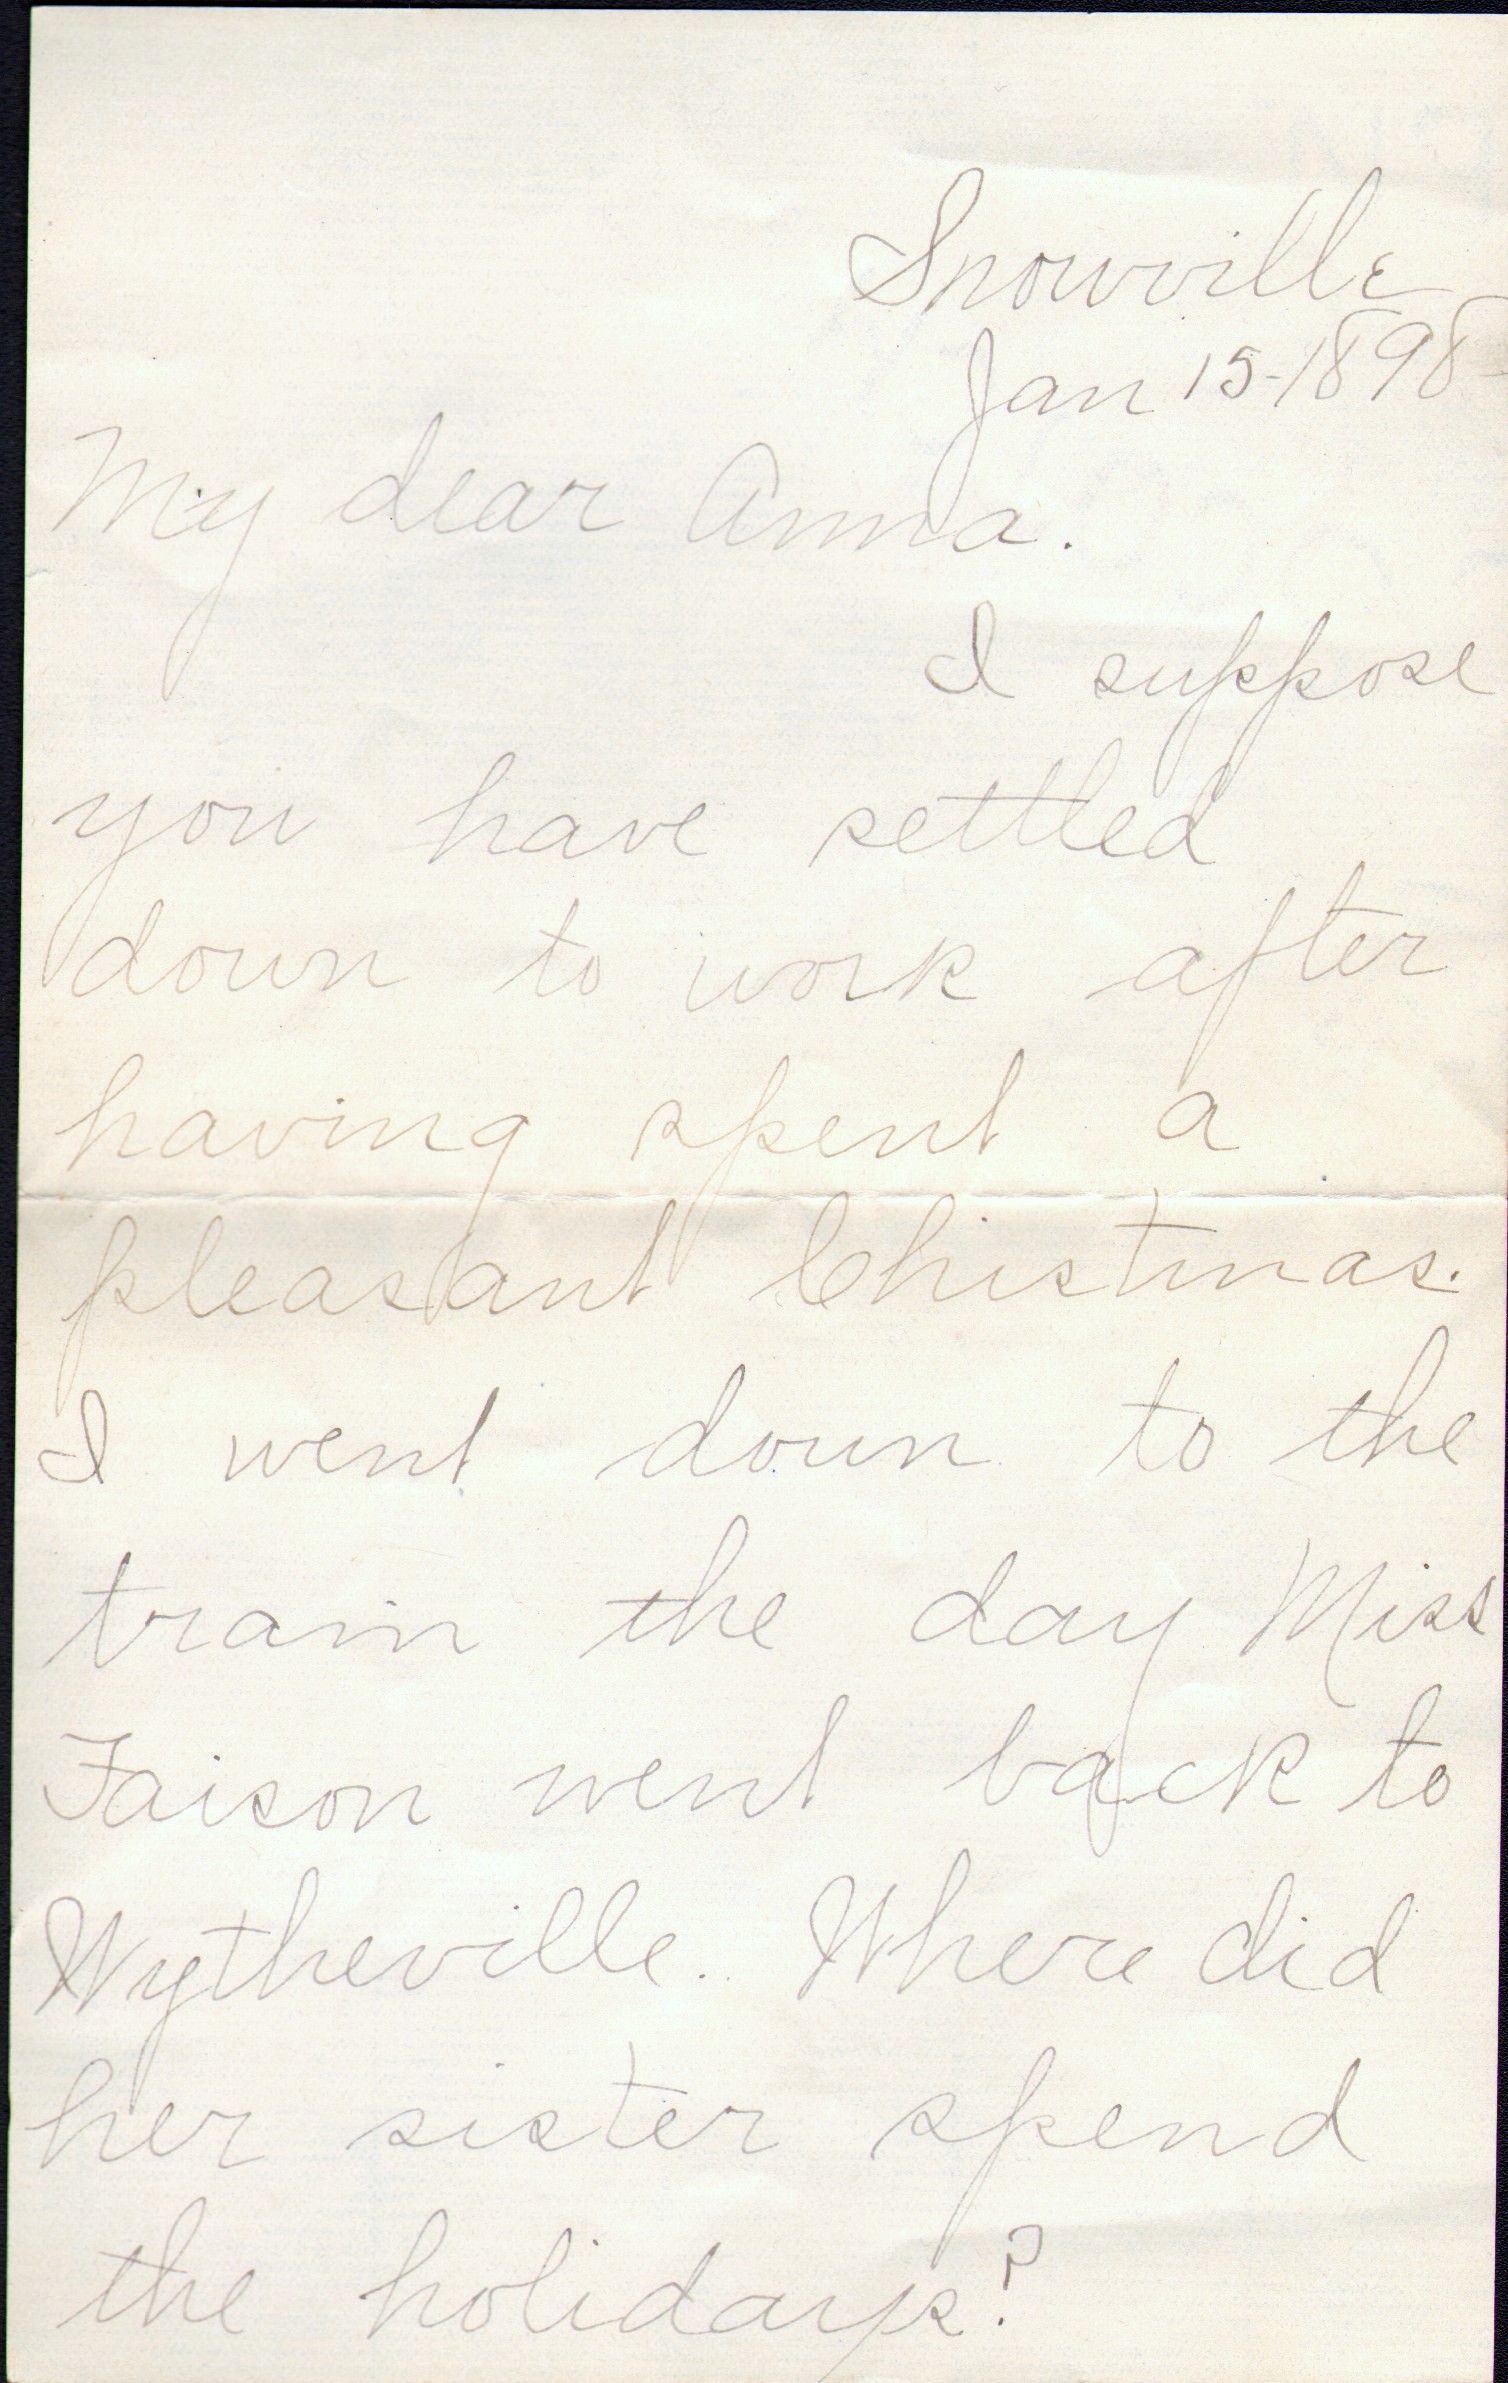 Snowville
Jan 15-1898-
My dear Anna.
I suppose
you have settled
down to work after
having spent a
pleasant Chistmas.
I went down to the
train the day Miss
Faison went back to
Wytheville. Where did
her sister spend
the holidays?